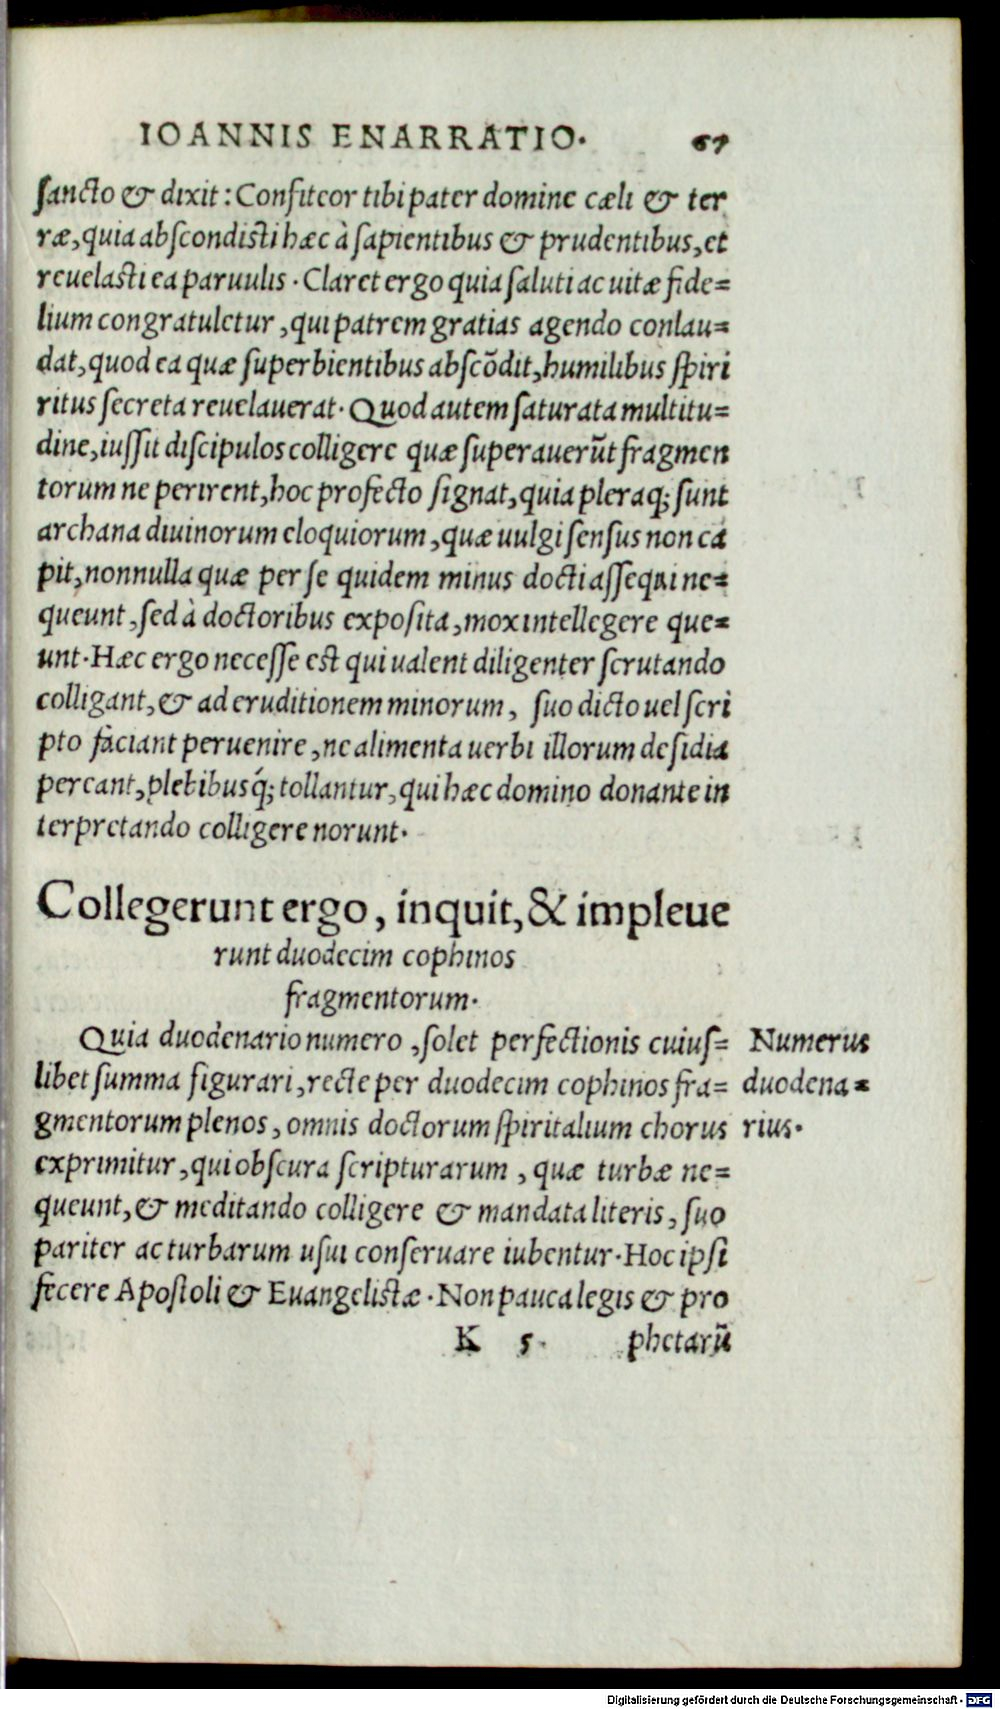 IOANNIS ENARRATIO. 67
sancto & dixit: Confiteor tibi pater domine cæli & ter
ræ, quia abscondisti hæc à sapientibus & prudentibus, et
reuelasti ea paruulis. Claret ergo quia saluti ac uitæ fide=
lium congratuletur, qui patrem gratias agendo conlau=
dat, quod ea quæ superbientibus abscõdit, humilibus spiri
ritus secreta reuelauerat. Quod autem saturata multitu=
dine, iussit discipulos colligere quæ superauerũt fragmen
torum ne perirent, hoc profecto signat, quia pleraq; sunt
archana diuinorum eloquiorum, quæ uulgi sensus non ca
pit, nonnulla quæ per se quidem minus docti assequi ne=
queunt, sed à doctoribus exposita, mox intellegere que=
unt. Hæc ergo necesse est qui ualent diligenter scrutando
colligant, & ad eruditionem minorum, suo dicto uel scri
pto faciant peruenire, ne alimenta uerbi illorum desidia
pereant, plebibusq́; tollantur, qui hæc domino donante in
terpretando colligere norunt.
Collegerunt ergo, inquit, & impleue
runt duodecim cophinos
fragmentorum.
Quia duodenario numero, solet perfectionis cuius=
libet summa figurari, recte per duodecim cophinos fra=
gmentorum plenos, omnis doctorum spiritalium chorus
exprimitur, qui obscura scripturarum, quæ turbæ ne=
queunt, & meditando colligere & mandata literis, suo
pariter ac turbarum usui conseruare iubentur. Hoc ipsi
fecere Apostoli & Euangelistæ. Non pauca legis & pro
Numerus
duodena=
rius.
K 5. phetarũ
Digitalisierung gefördert durch die Deutsche Forschungsgemeinschaft - DFG